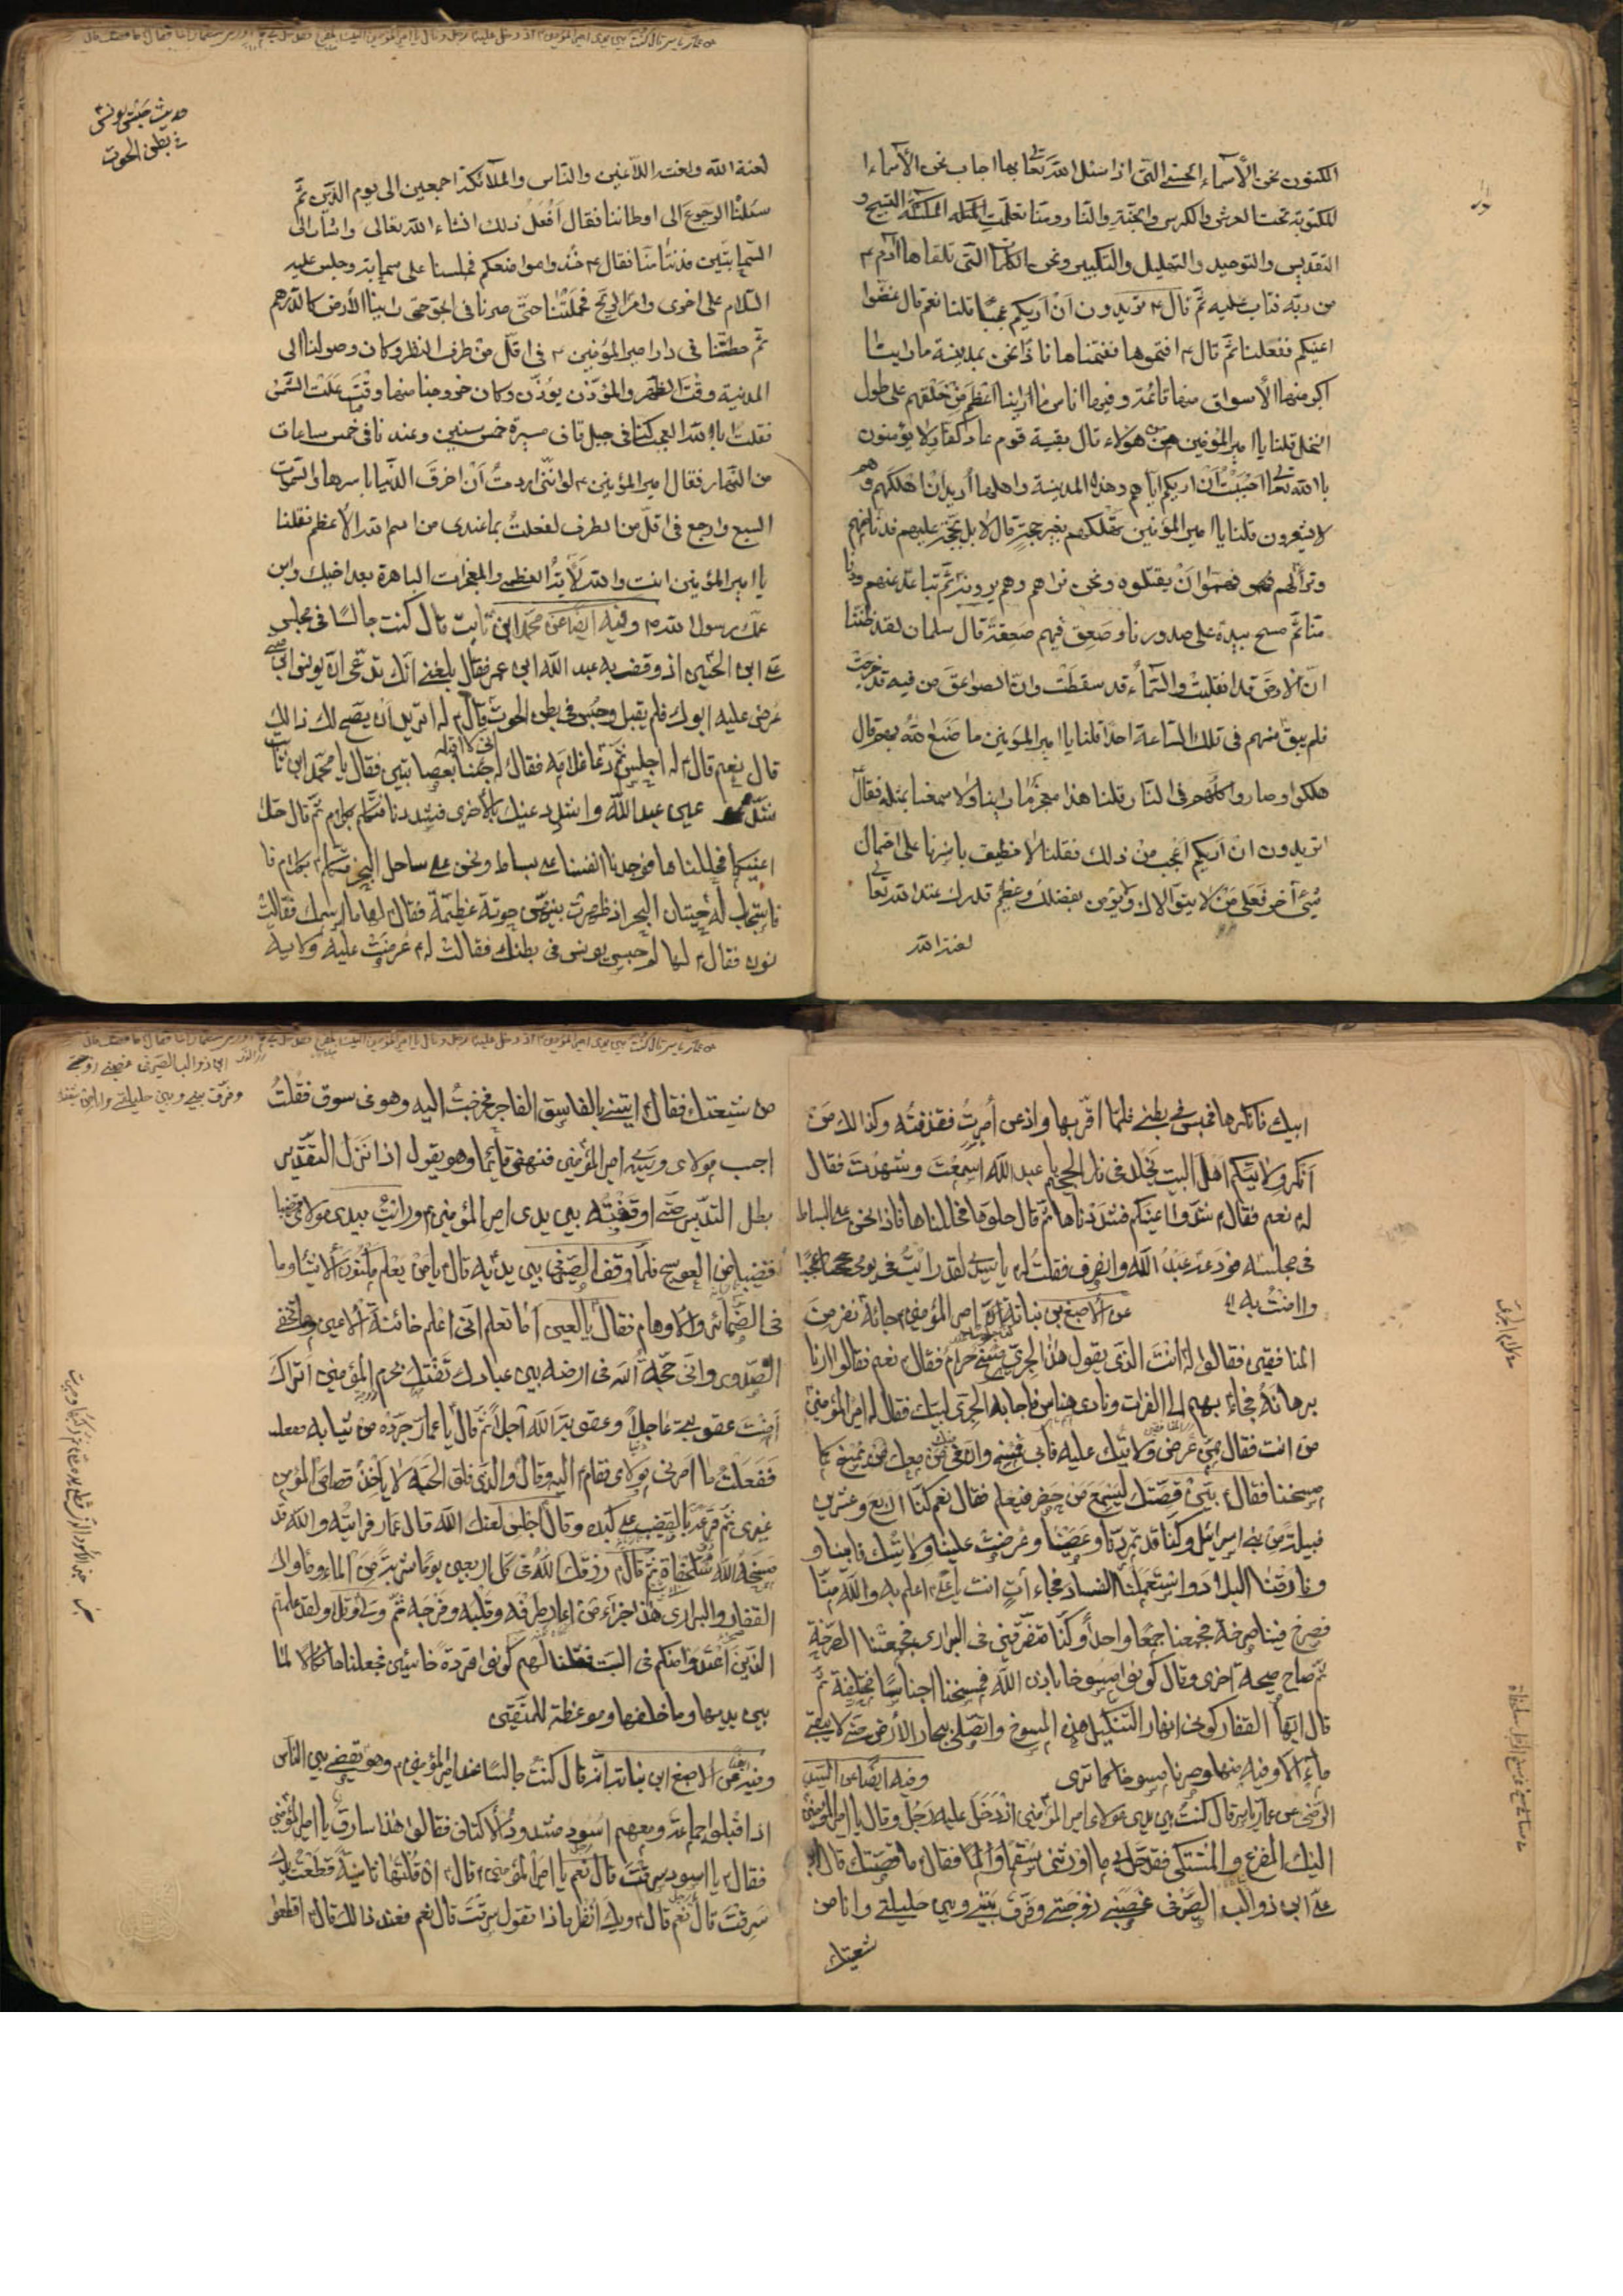 المكنون نحن الأسماء الحسنى التي اذا سئل الله تعا بها اجاب نحن الأسماء
المكتوبة تحت العرش والكرسي والجنة والنار ومنا تعلمت الملئكة التسبيح و
التقديس والتوحيد والتهليل والتكبير ونحن الكلمات التي تلقاها آدم ع
من ربه فتاب عليه ثم قال ع تريدون ان اريكم عجبا قلنا نعم قال غضوا
اعينكم ففعلنا ثم قال ع افتحوها ففتحناها فاذا نحن بمدينة ما راينا
اكبر منها الأسواق منها قائمة وفيها اناس ما راينا اعظم من خلقهم على طول
النخل قلنا يا امير المؤمنين من هؤلاء قال بقية قوم عاد كفار لا يؤمنون
بالله تعا احببت ان اريكم اياهم وهذه المدينة واهلها اريد ان اهلكهم وهم
لا يشعرون قلنا يا امير المؤمنين تهلكهم بغير حجة قال لا بل بحجة عليهم فدنا منهم
وترآ لهم فهموا ان يقتلوه ونحن نراهم وهم يرونا ثم تباعد عنهم ودنا
منا ثم مسح بيده على صدورنا وصعق فيهم صعقة قال سلمان لقد ظننا
ان الارض قد انقلبت والسماء قد سقطت وان الصواعق من فيه قد خرجت
فلم يبق منهم في تلك الساعة احد قلنا يا امير المؤمنين ما صنع الله بهم قال
هلكوا وصاروا كلهم في النار قلنا هذا معجز ما راينا ولا سمعنا بمثله فقال
اتريدون ان اريكم اعجب من ذلك فقلنا لا نطيق باسرنا على احتمال
شيئ آخر فعلى من لا يتوالاك ويؤمن بفضلك وعظيم قدرك عند الله تعا
لعنة الله
حديث حبس يونس
في بطن الحوت
لعنة الله ولعنة اللاعنين والناس والملآئكة اجمعين الى يوم الدين ثم
سئلنا الرجوع الى اوطاننا فقال افعل ذلك انشاء الله تعالى واشار الى
السحابتين فدنتا منا فقال ع خذوا مواضعكم فجلسنا على سحابة وجلس عليه
السلام على اخرى وامر الريح فحملتنا حتى صرنا في الجو حتى راينا الأرض كالدرهم
ثم حطتنا في دار امير المؤمنين ع في اقل من طرف النظر وكان وصولنا الى
المدينة وقت الظهر والمؤذن يؤذن وكان خروجنا منها وقت علت الشمس
فقلت بالله العجب كنا في جبل قاف مسيرة خمس سنين وعدنا في خمس ساعات
من النهار فقال امير المؤمنين ع لو انني اردت ان اخرق الدنيا باسرها والسموات
السبع وارجع في اقل من الطرف لفعلت بما عندي من اسم الله الأعظم فقلنا
يا امير المؤمنين انت والله الآية العظمى والمعجزات الباهرة بعد اخيك وابن
عمك رسول الله ص وفيه ايضا عن محمد ابن ثابت قال كنت جالسا في مجلس
على ابن الحسين اذ وقف به عبد الله ابن عمر فقال بلغني انك تدعي ان يونس ابن متى
عرض عليه ابوك فلم يقبل وحبس في بطن الحوت قال له اتريد ان يصح لك ذالك
قال نعم قال له اجلس ثم دعا غلامه فقال له جئنا بعصابتين فقال يا محمد ابن ثابت
شد عين عبد الله واشدد عينك بالأخرى فشددنا فتكلم بكلام ثم قال حلا
اعينكما فحللناها فوجدنا انفسنا على بساط ونحن على ساحل البحر فتكلم بكلام
فاستجاب له حيتان البحر اذ ظهرت بينهن حوتة عظيمة فقال لها ما اسمك فقالت
نون فقال لها لم حبس يونس في بطنك فقالت له عرضت عليه ولاية
ابيك فانكرها فحبس في بطني فلما اقر بها واذعن امرت فقذفته وكذالك من
انكر ولايتكم اهل البيت يخلد في نار الجحيم يا عبد الله اسمعت وشهدت فقال
له نعم فقال شدوا اعينكم فشددناها ثم قال حلوها فحللناها فاذا نحن على البساط
في مجلسه فودعه عبد الله وانصرف فقلت له يا سيدي لقد رايت في يومي عجبا
وامنت به
عن الأصبغ بن نباتة ان امير المؤمنين جائه نفر من
المنافقين فقالوا له انت الذي يقول هذا الجري مسخ حرام فقال نعم فقالوا ارنا
برهانه فجاء بهم الى الفرات ونادى هناس فاجابه الجري لبيك فقال له امير المؤمنين
من انت فقال ممن عرض ولايتك عليه فابى فمسخ وان في من معك من يمسخ كما
مسخنا فقال بين قصتك ليسمع من حضر فيعلم فقال نعم كنا اربع وعشرين
قبيلة من بني اسرائيل وكنا قد تمردنا وعصينا وعرضت علينا ولايتك فابينا و
فارقنا البلاد واستعملنا الفساد فجاء آت انت اعلم به والله منا
فصرخ فينا صرخة فجمعنا جمعا واحدا وكنا متفرقين في البراري فجمعتنا الصرخة
ثم صاح صيحة اخرى وقال كونوا مسوخا باذن الله فمسخنا اجناسا مختلفة ثم
قال ايها القفار كوني انهارا لتسكنك هذه المسوخ واتصلي ببحار الأرض حتى لا يبقى
ماء الا وفيه منها وصرنا مسوخا كما ترى
وفيه ايضا عن السيد
الرضي عن عمار ياسر قال كنت بين يدي مولاي امير المؤمنين اذ دخل عليه رجل وقال يا امير المؤمنين
اليك المفزع والمشتكى فقد حل بي ما اورثني سقما والما فقال ما قصتك قال
على ابن ذوالب الصيرفي غصبني زوجتي وفرق بيني وبين حليلتي وانا من
شيعتك
من شيعتك فقال ايتني بالفاسق الفاجر فخرجت اليه وهو في سوق فقلت
اجب مولاي وسيدي امير المؤمنين فنهض قائما وهو يقول اذا نزل التقدير
بطل التدبير حتى اوقفته بين يدي امير المؤمنين ورايت بيدي مولاي قضيبا
قضيبا من العوسج فلما وقف الصيرفي بين يديه قال يا من يعلم مكنون الأشياء وما
في الضمائر والأوهام فقال يا لعين اما تعلم اني اعلم خائنة الأعين وما تخفي
الصدور واني حجة الله في ارضه بين عباده تفتك بحرم المؤمنين اتراك
امنت عقوبتي عاجلا وعقوبة الله آجلا ثم قال يا عمار جرده من ثيابه
ففعلت ما امرني مولاي فقام اليه وقال والذي فلق الحبة لا ياخذ قصاص المؤمن
غيري ثم قرعه بالقضيب على كبده وقال اخس لعنك الله قال عمار فرايته والله قد
مسخه الله سلحفاة ثم قال رزقك الله في كل اربعين يوما شربة من الماء وماواك
القفار والبراري هذا جزاء من اعار طرفه وقلبه وفرجه ثم ولى وتلى ولقد علمتم
الذين اعتدوا منكم في السبت فقلنا لهم كونوا قردة خاسئين فجعلناها نكالا لما
بين يديها وما خلفها وموعظة للمتقين
وفيه ايضا عن الأصبغ ابن نباتة انه قال كنت جالسا عند امير المؤمنين وهو يقضي بين الناس
اذ اقبلوا جماعة ومعهم اسود مشدود الأكتاف فقالوا هذا سارق يا امير المؤمنين
فقال يا اسود سرقت قال نعم يا امير المؤمنين قال ان قلتها ثانية قطعت يدك
سرقت قال نعم قال ويك انظر ماذا تقول سرقت قال نعم فعند ذالك قال اقطعوا